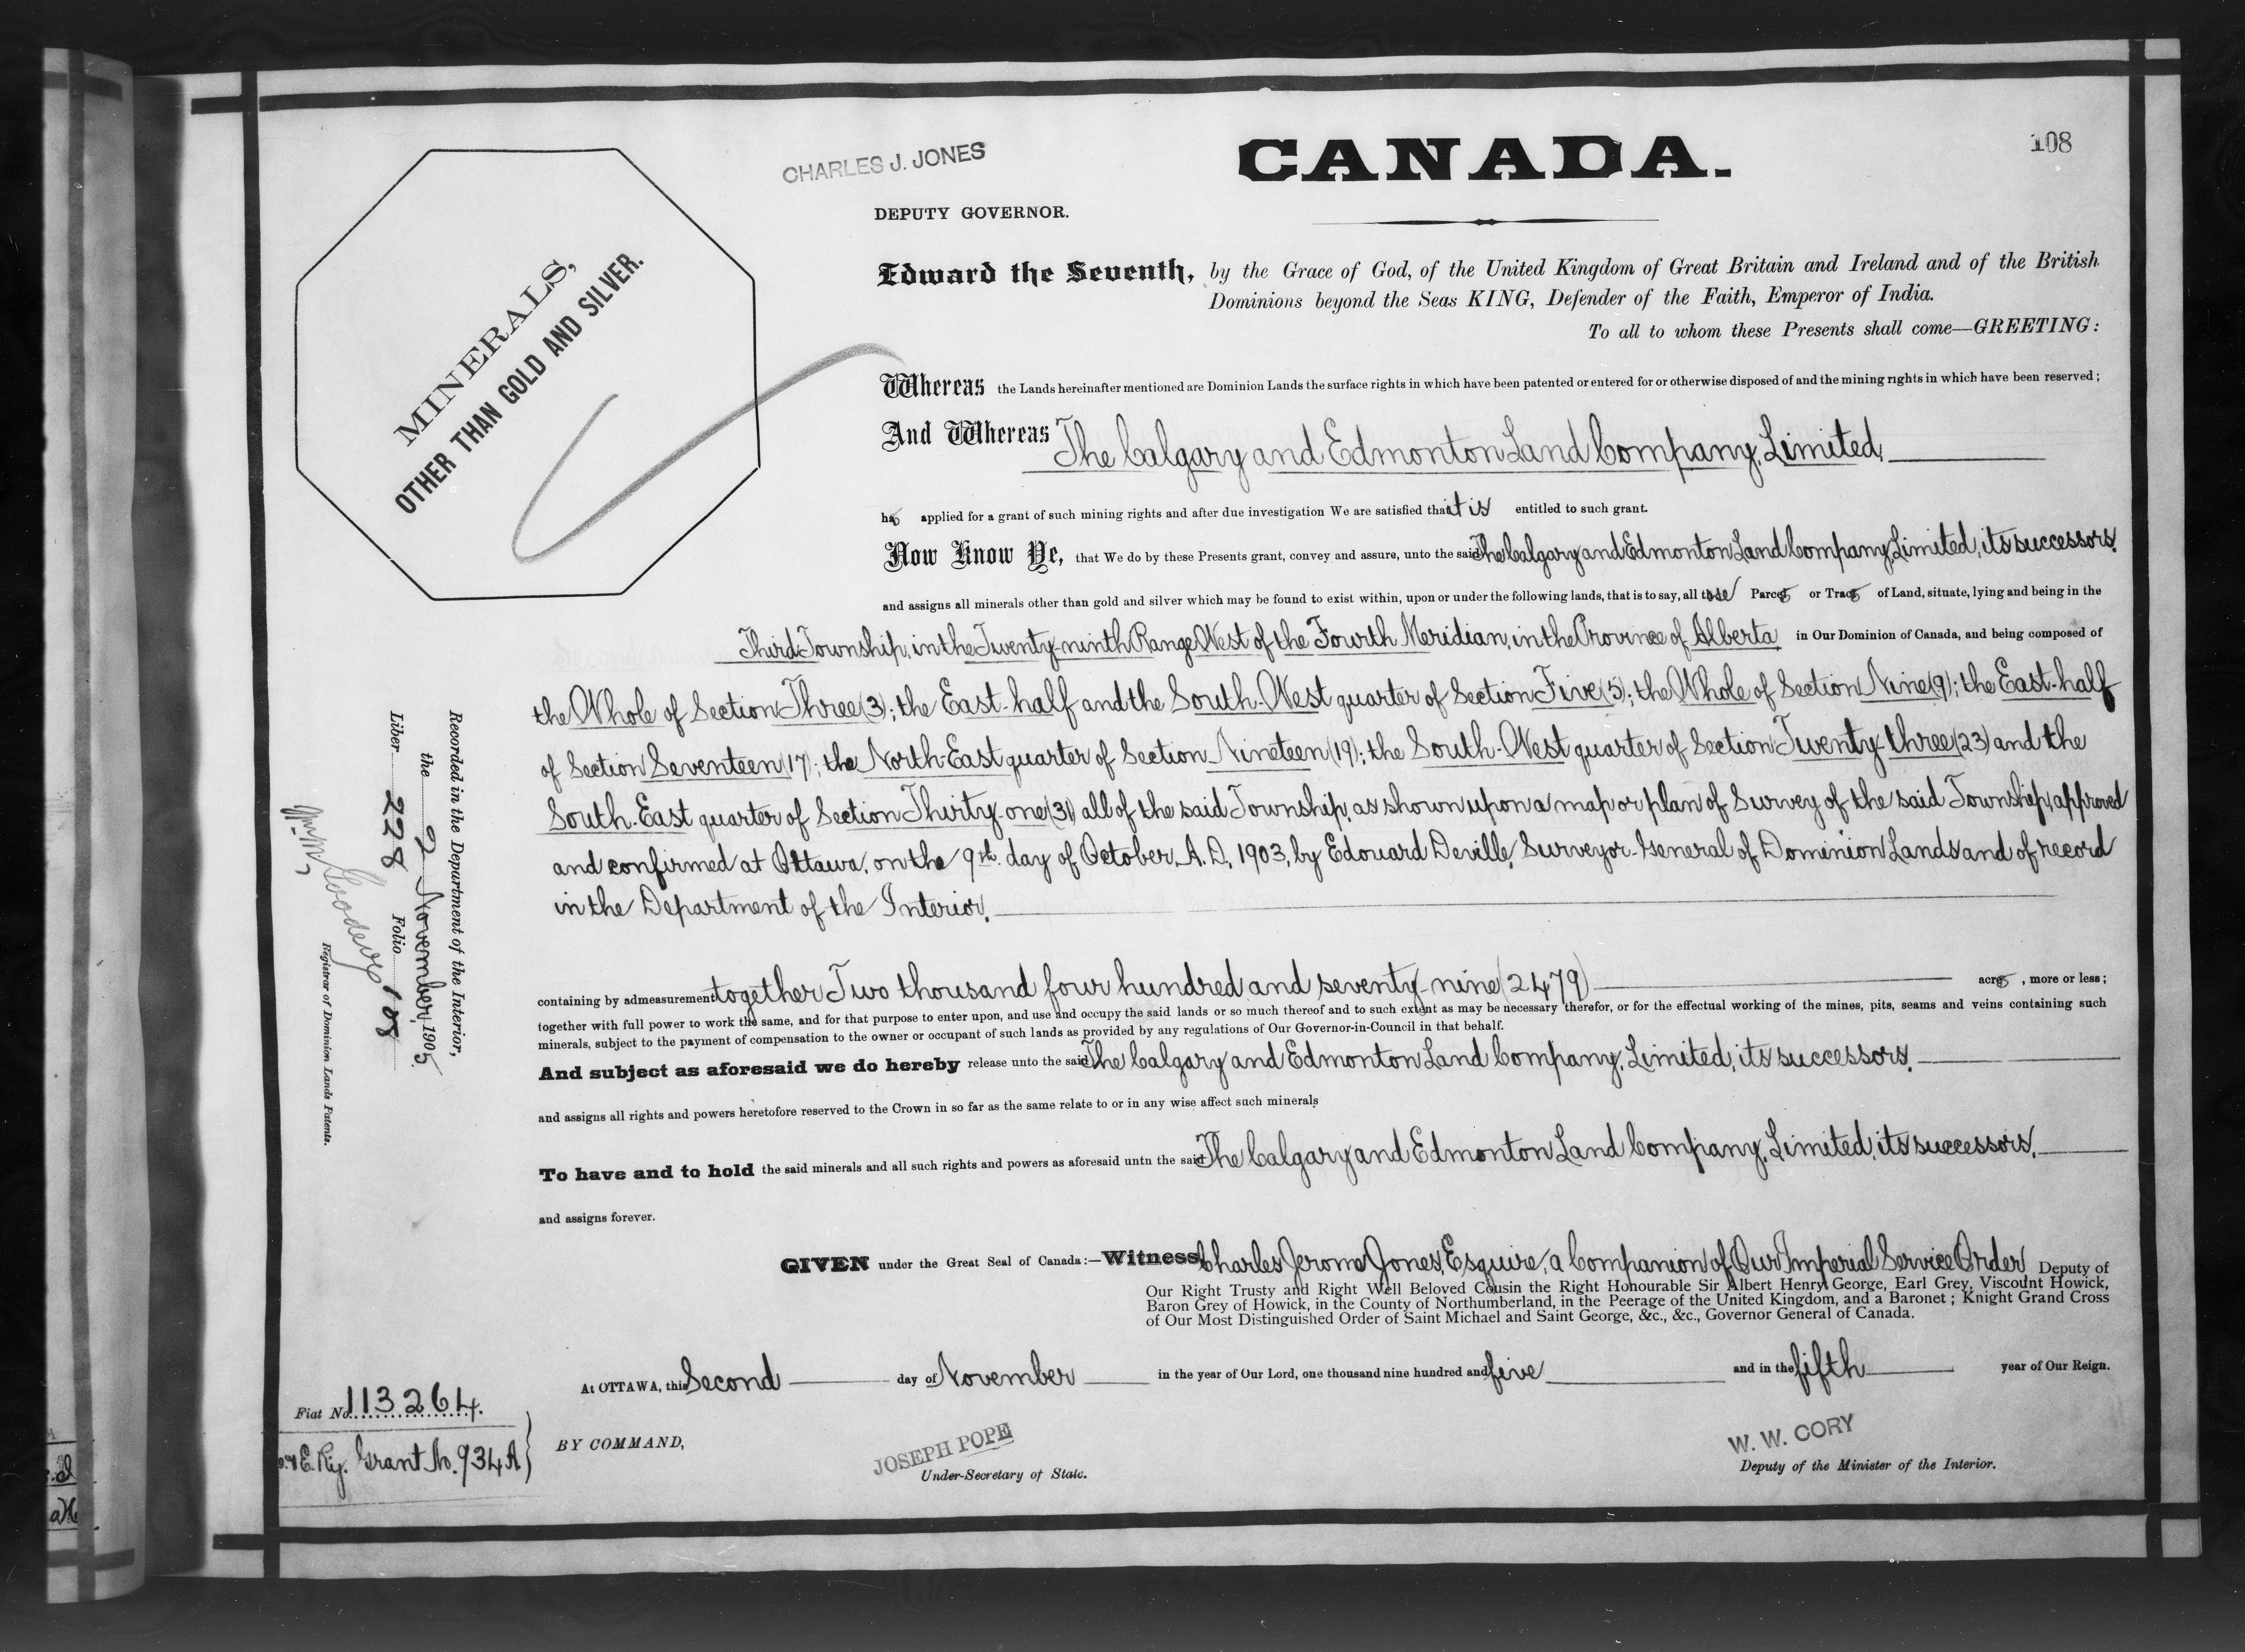 108
CHARLES J. JONES
CANADA.
DEPUTY GOVERNOR.
MINERALS,
OTHER THAN GOLD AND SILVER.
Edward the Seventh, by the Grace of God, of the United Kingdom of Great Britain and Ireland and of the British
Dominions beyond the Seas KING, Defender of the Faith, Emperor of India.
To all to whom these Presents shall come—GREETING:
Whereas the Lands hereinafter mentioned are Dominion Lands the surface rights in which have been patented or entered for or otherwise disposed of and the mining rights in which have been reserved;
And Whereas The Calgary and Edmonton Land Company, Limited,
has applied for a grant of such mining rights and after due investigation We are satisfied that it is entitled to such grant.
Now Know Ye, that We do by these Presents grant, convey and assure, unto the said The Calgary and Edmonton Land Company, Limited, its successors,
and assigns all minerals other than gold and silver which may be found to exist within, upon or under the following lands, that is to say, all those Parcels or Tracts of Land, situate, lying and being in the
Third Township, in the Twenty-ninth Range West of the Fourth Meridian, in the Province of Alberta, in Our Dominion of Canada, and being composed of
the Whole of Section Three (3); the East-half and the South-West quarter of Section Five (5); the Whole of Section Nine (9); the East-half
of Section Seventeen (17); the North-East quarter of Section Nineteen (19); the South-West quarter of Section Twenty-three (23) and the
South-East quarter of Section Thirty-one (31) all of the said Township, as shown upon a map or plan of Survey of the said Township, approved
and confirmed at Ottawa, on the 9th. day of October, A.D. 1903, by Edouard Deville, Surveyor-General of Dominion Lands and of record
in the Department of the Interior,
containing by admeasurement together Two thousand four hundred and seventy-nine (2479) acres, more or less;
together with full power to work the same, and for that purpose to enter upon, and use and occupy the said lands or so much thereof and to such extent as may be necessary therefor, or for the effectual working of the mines, pits, seams and veins containing such
minerals, subject to the payment of compensation to the owner or occupant of such lands as provided by any regulations of Our Governor-in-Council in that behalf.
And subject as aforesaid we do hereby release unto the said The Calgary and Edmonton Land Company, Limited, its successors,
and assigns all rights and powers heretofore reserved to the Crown in so far as the same relate to or in any wise affect such minerals
To have and to hold the said minerals and all such rights and powers as aforesaid untn the said The Calgary and Edmonton Land Company, Limited, its successors,
and assigns forever.
GIVEN under the Great Seal of Canada:—Witness, Charles Jerome Jones, Esquire, a Companion of Our Imperial Service Order, Deputy of
Our Right Trusty and Right Well Beloved Cousin the Right Honourable Sir Albert Henry George, Earl Grey, Viscount Howick,
Baron Grey of Howick, in the County of Northumberland, in the Peerage of the United Kingdom, and a Baronet; Knight Grand Cross
of Our Most Distinguished Order of Saint Michael and Saint George, &c., &c., Governor General of Canada.
At OTTAWA, this Second day of November in the year of Our Lord, one thousand nine hundred and five and in the fifth year of Our Reign.
BY COMMAND,
JOSEPH POPE
Under-Secretary of State.
W. W. CORY
Deputy of the Minister of the Interior.
Recorded in the Department of the Interior,
the 9 November, 1905
Liber 228 Folio 108
Registrar of Dominion Lands Patents.
Fiat No. 113264.
E. Ry. Grant No. 934 A